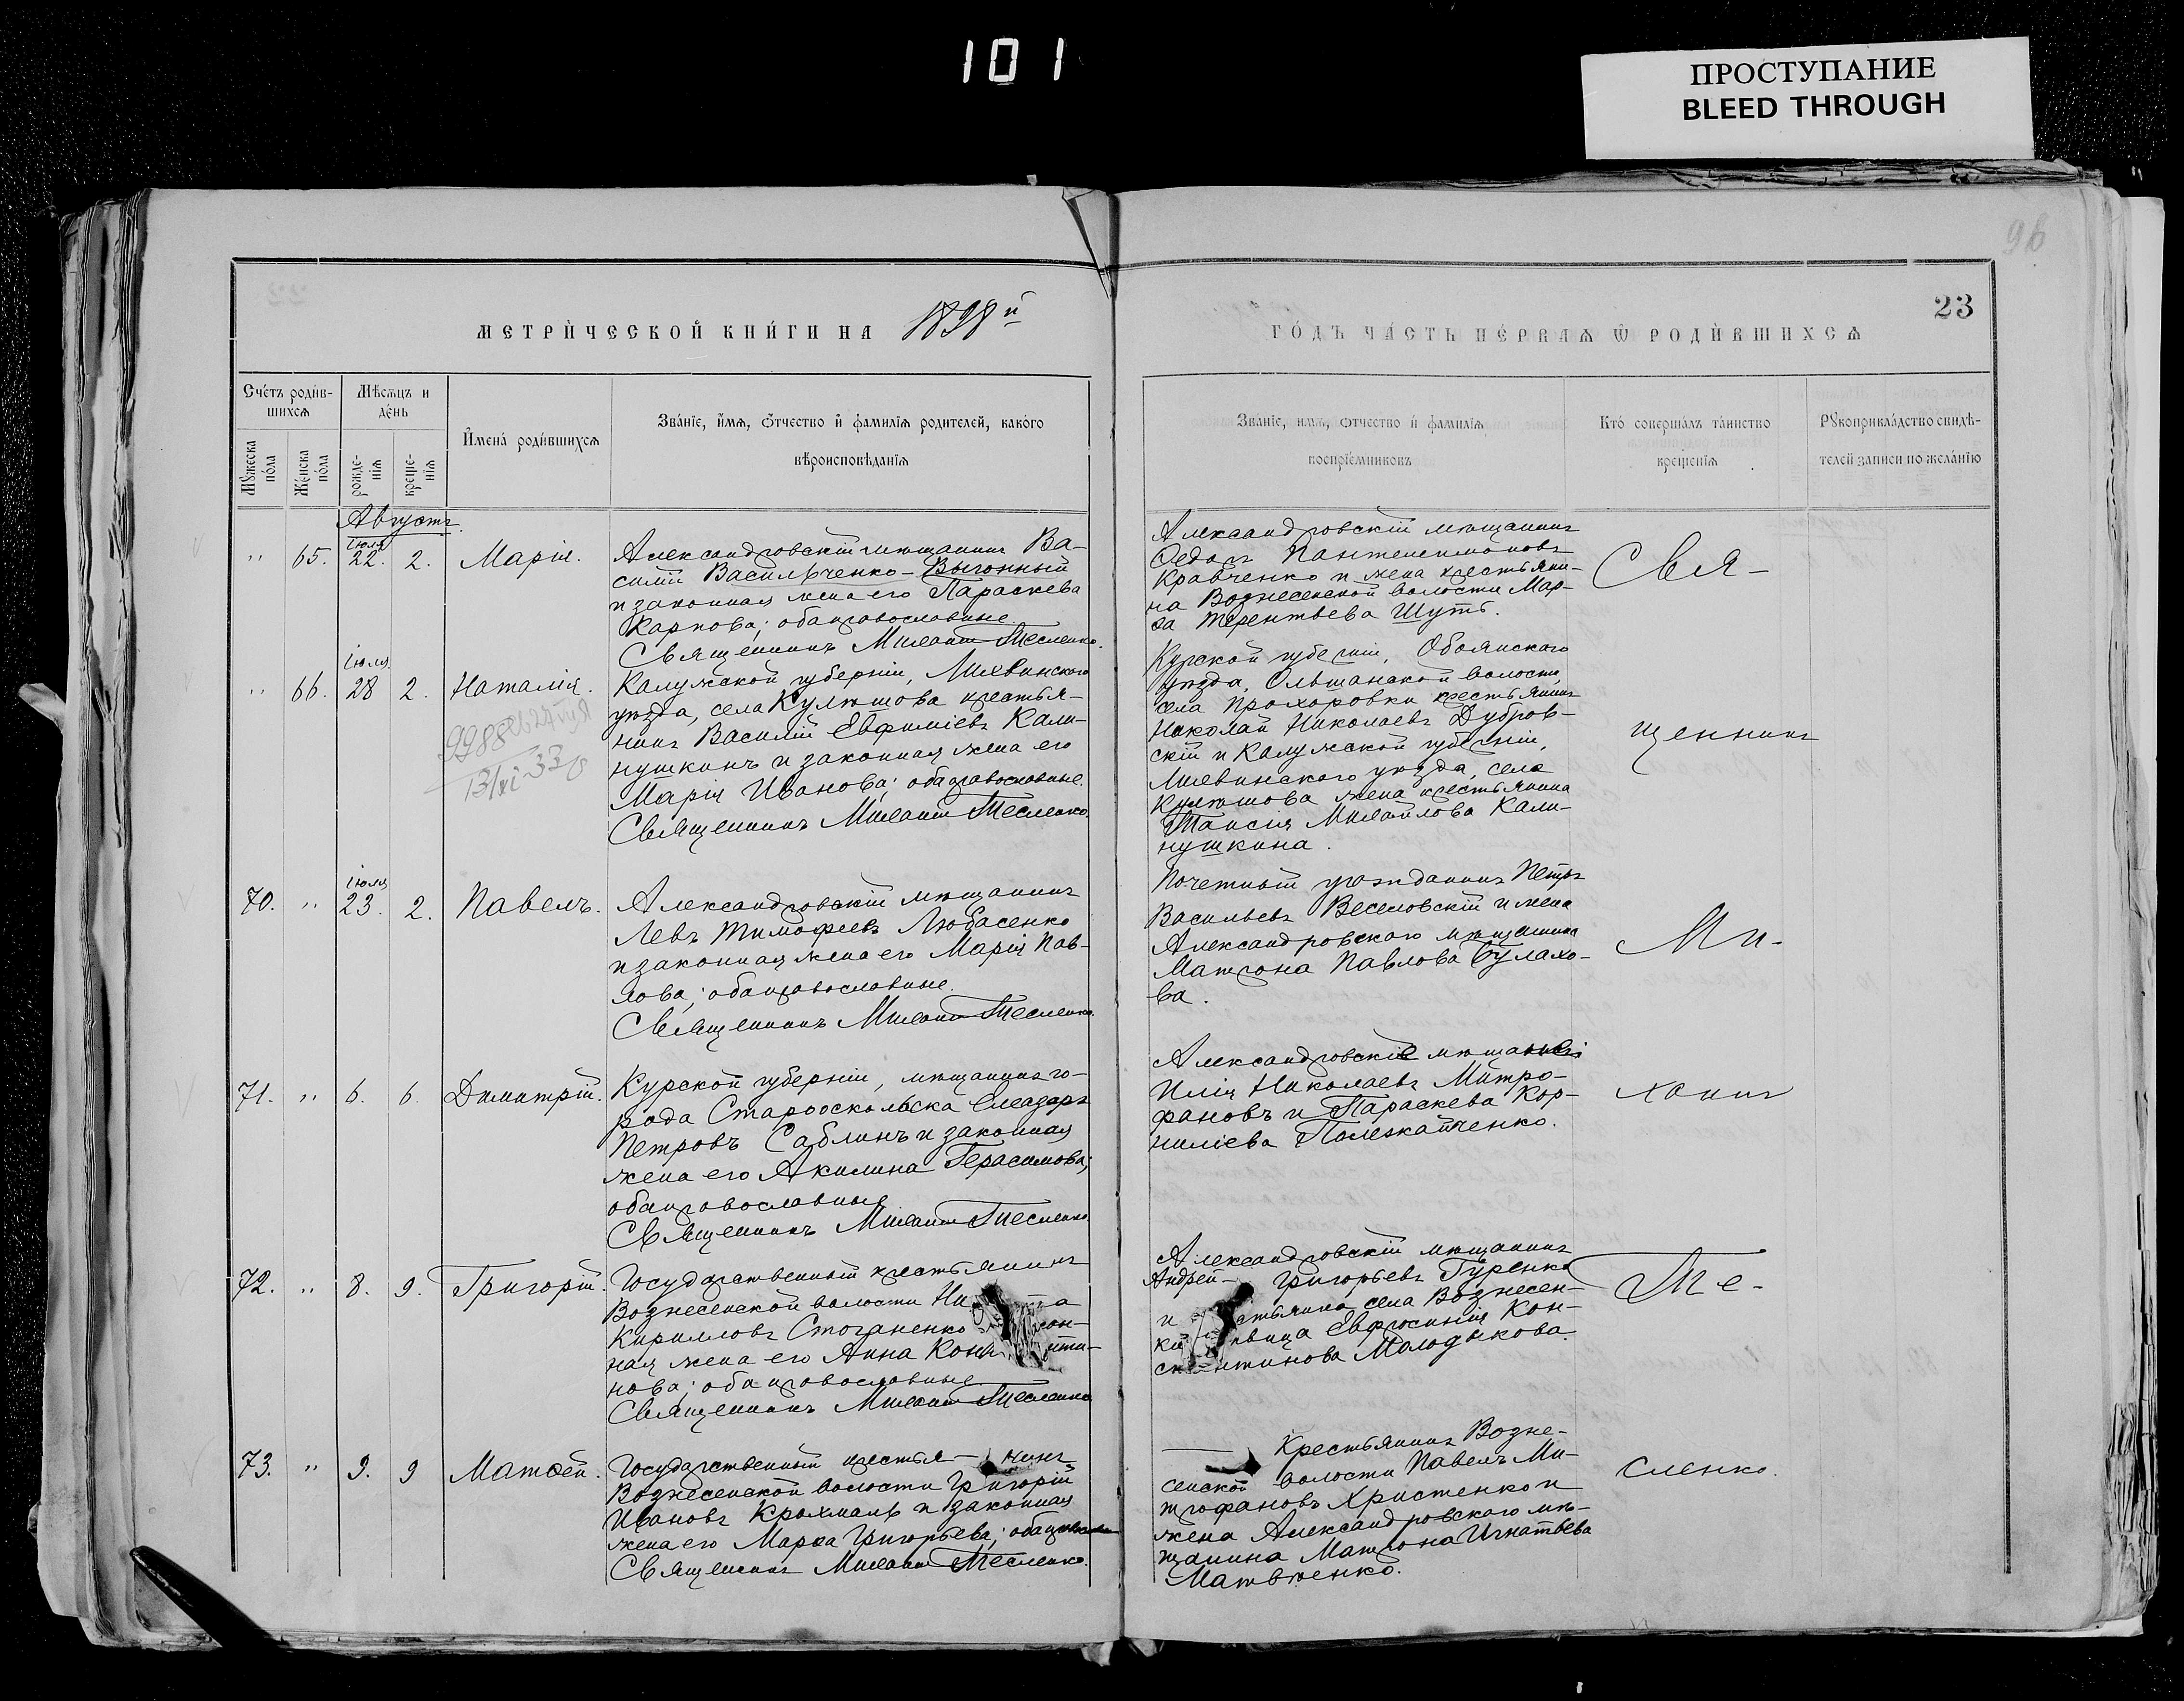 101
ПРОСТУПАНИЕ
BLEED THROUGH
96
23
МЕТРИ́ЧЕСКОЙ КНИ́ГИ НА 1898й
ГО́ДЪ ЧА́СТЬ ПЕ́РВАѦ Ѡ РОДИ́ВШИХСѦ
Сче́тъ роди́в-
шихсѧ
Мѣ́сѧцъ и
де́нь
Мꙋ́жеска
по́ла
Же́нска
по́ла
рожде-
нїѧ
креще-
нїѧ
И҆мена̀ роди́вшихсѧ
Зва́нїе, и҆́мѧ, ѻ҆́тчество и҆ фамилїѧ родителей, како́го
вѣроисповѣ́данїѧ
Зва́нїе, и́мѧ, ѻтчество и҆ фамилїѧ
воспрїе́мниковъ
Кто́ соверша́лъ та́инство
креще́нїѧ
Рꙋкоприкла́дство свидѣ́-
телей записи по жела́нїю
Августъ.
" 65. Іюля 22. 2. Марія.
Александровскій мѣщанинъ Ва-
силій Васильченко-Выгонный
и законная жена его Параскева
Карпова; оба православные.
Священникъ Михаилъ Тесленко.
Александровскій мѣщанинъ
Ѳедоръ Пантелеимоновъ
Кравченко и жена крестьяни-
на Вознесенской волости Мар-
ѳа Терентьева Шуть.
Свя-
" 66. Іюля 28 2. Наталія.
9988
13/XI-33
Калужской губерніи, Лихвинского
уѣзда, села Кулѣшова крестья-
нинъ Василій Евфиміевъ Кали-
нушкинъ и законная жена его
Марія Иванова; оба православные.
Священникъ Михаилъ Тесленко.
Курской губерніи, Обоянскаго
уѣзда, Ольшанской волости,
села Прохоровки крестьянинъ
Николай Николаевъ Дубров-
скій и Калужской губерніи,
Лихвинского уѣзда, села
Кулѣшова жена крестьянина
Таисія Михайлова Кали-
нушкина.
щенникъ
70. " Іюля 23. 2. Павелъ.
Александровскій мѣщанинъ
Левъ Тимофеевъ Любасенко
и законная жена его Марія Пав-
лова; оба православные.
Священникъ Михаилъ Тесленко.
Почетный гражданинъ Петръ
Васильевъ Веселовскій и жена
Александровского мѣщанина
Матрона Павлова Булахо-
ва.
Ми-
71. " 6. 6. Димитрій.
Курской губерніи, мѣщанинъ го-
рода Старооскольска Елеазаръ
Петровъ Саблинъ и законная
жена его Акилина Герасимова;
оба православные
Священникъ Михаилъ Тесленко.
Александровскіе мѣщане
Илія Николаевъ Митро-
фановъ и Параскева Кор-
ниліева Полежайченко.
хаилъ
72. " 8. 9. Григорій.
Государственный крестьянинъ
Вознесенской волости Ни
Кирилловъ Стоганенко кон-
ная жена его Анна Кон нти-
нова; оба православные.
Священникъ Михаилъ Тесленко
Александровскій мѣщанинъ
Андрей Григорьевъ Гуренко
и стьянка села Вознесен-
ки вица Евфросинія Кон-
стантинова Молодыкова.
Те-
73. " 9. 9 Матѳей.
Государственный крестья-нинъ
Вознесенской волости Григорій
Ивановъ Крохмаль и законная
жена его Марѳа Григорьева; оба православные
Священникъ Михаилъ Тесленко.
Крестьянинъ Возне-
сенской волости Павелъ Ми-
трофановъ Христенко и
жена Александровского мѣ-
щанина Матрона Игнатьева
Матвѣенко.
сленко.